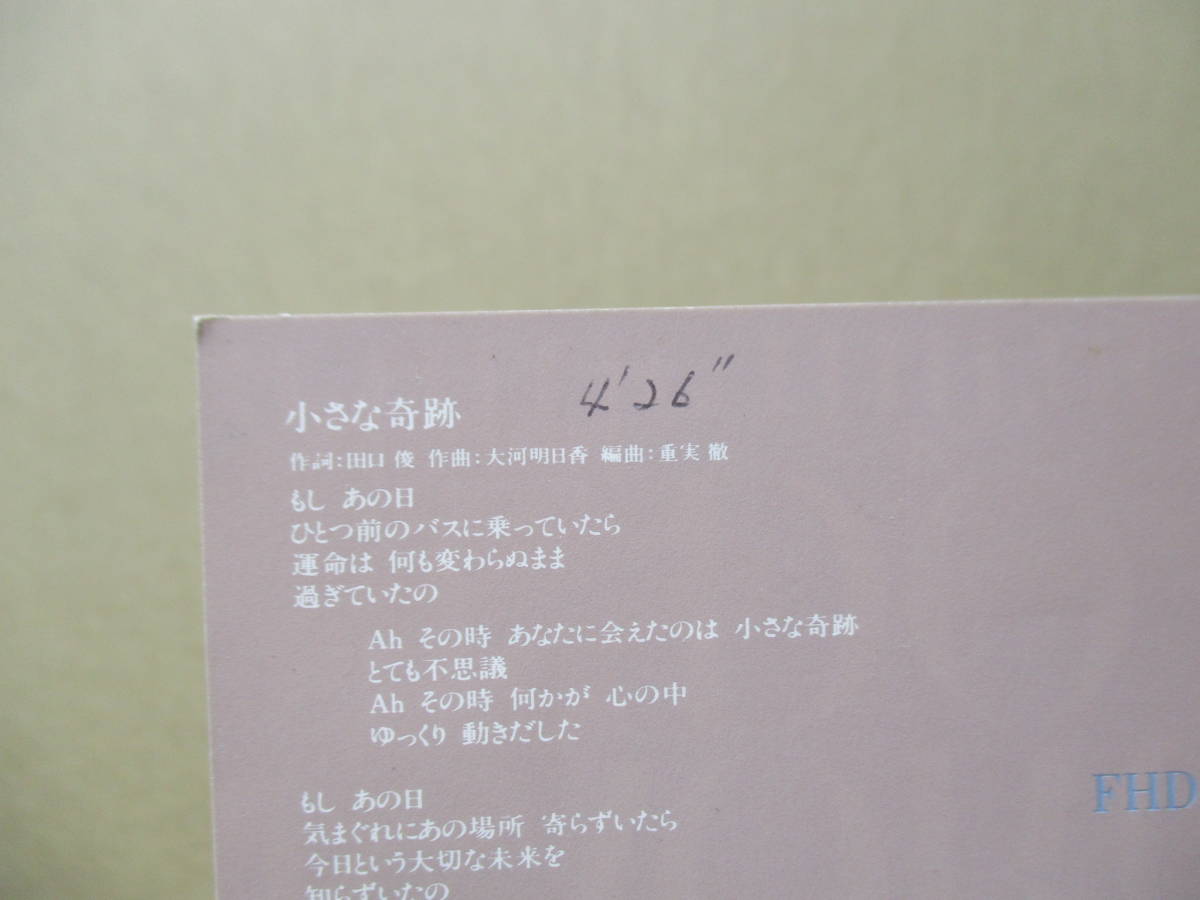 小さな奇跡 4'26"
作詞:田口 俊 作曲:大河明日香 編曲:重実 徹
もし あの日
ひとつ前のバスに乗っていたら
運命は 何も変わらぬまま
過ぎていたの
Ah その時 あなたに会えたのは 小さな奇跡
とても不思議
Ah その時 何かが 心の中
ゆっくり 動きだした
もし あの日
気まぐれにあの場所 寄らずいたら
今日という大切な未来を
知らずいたの
FHD